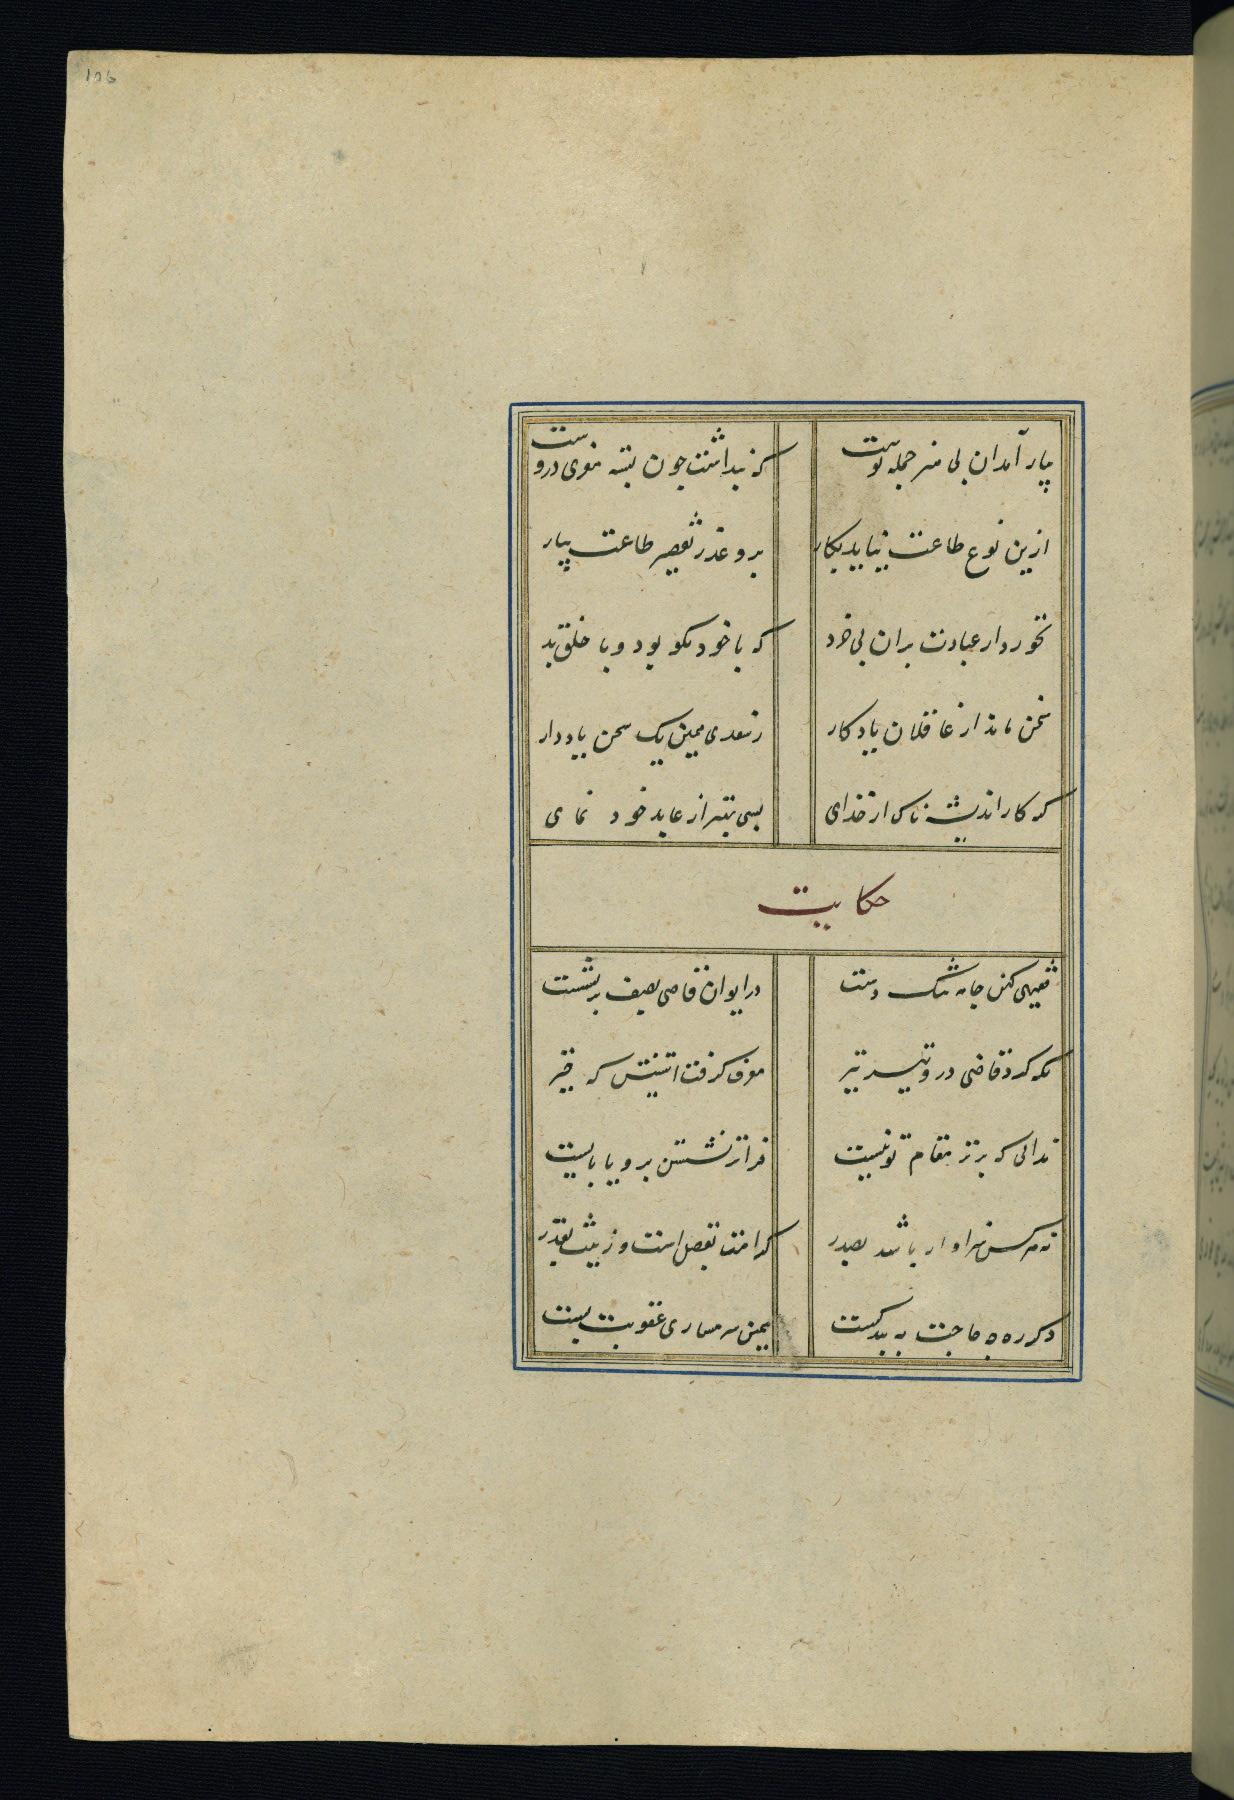 106
پیاز آمدان بی هنر جمله پوست
که پنداشت چون پسته مغزی دروست
ازین نوع طاعت نیاید بکار
برو عذر تقصیر طاعت بیار
نخورد از عبادت بران بی خرد
که با خود نکو بود و با خلق بد
سخن ماند از عاقلان یادکار
ز سعدی همین یک سخن یاد دار
کنه کار اندیشناک از خدای
بسی بهتر از عابد خود نمای
حکایت
فقیهی کهن جامه تنک دست
در ایوان قاضی بصف بر نشست
نکه کرد قاضی درو تیز تیز
معرف کرفت آستینش که خیز
ندانی که برتر مقام تو نیست
فروتر نشین یا برو یا بایست
نه هر کس سزاوار باشد بصدر
کرامت بفضل است و رتبت بقدر
دکر ره چه حاجت به پند کست
همین شرمساری عقوبت بست